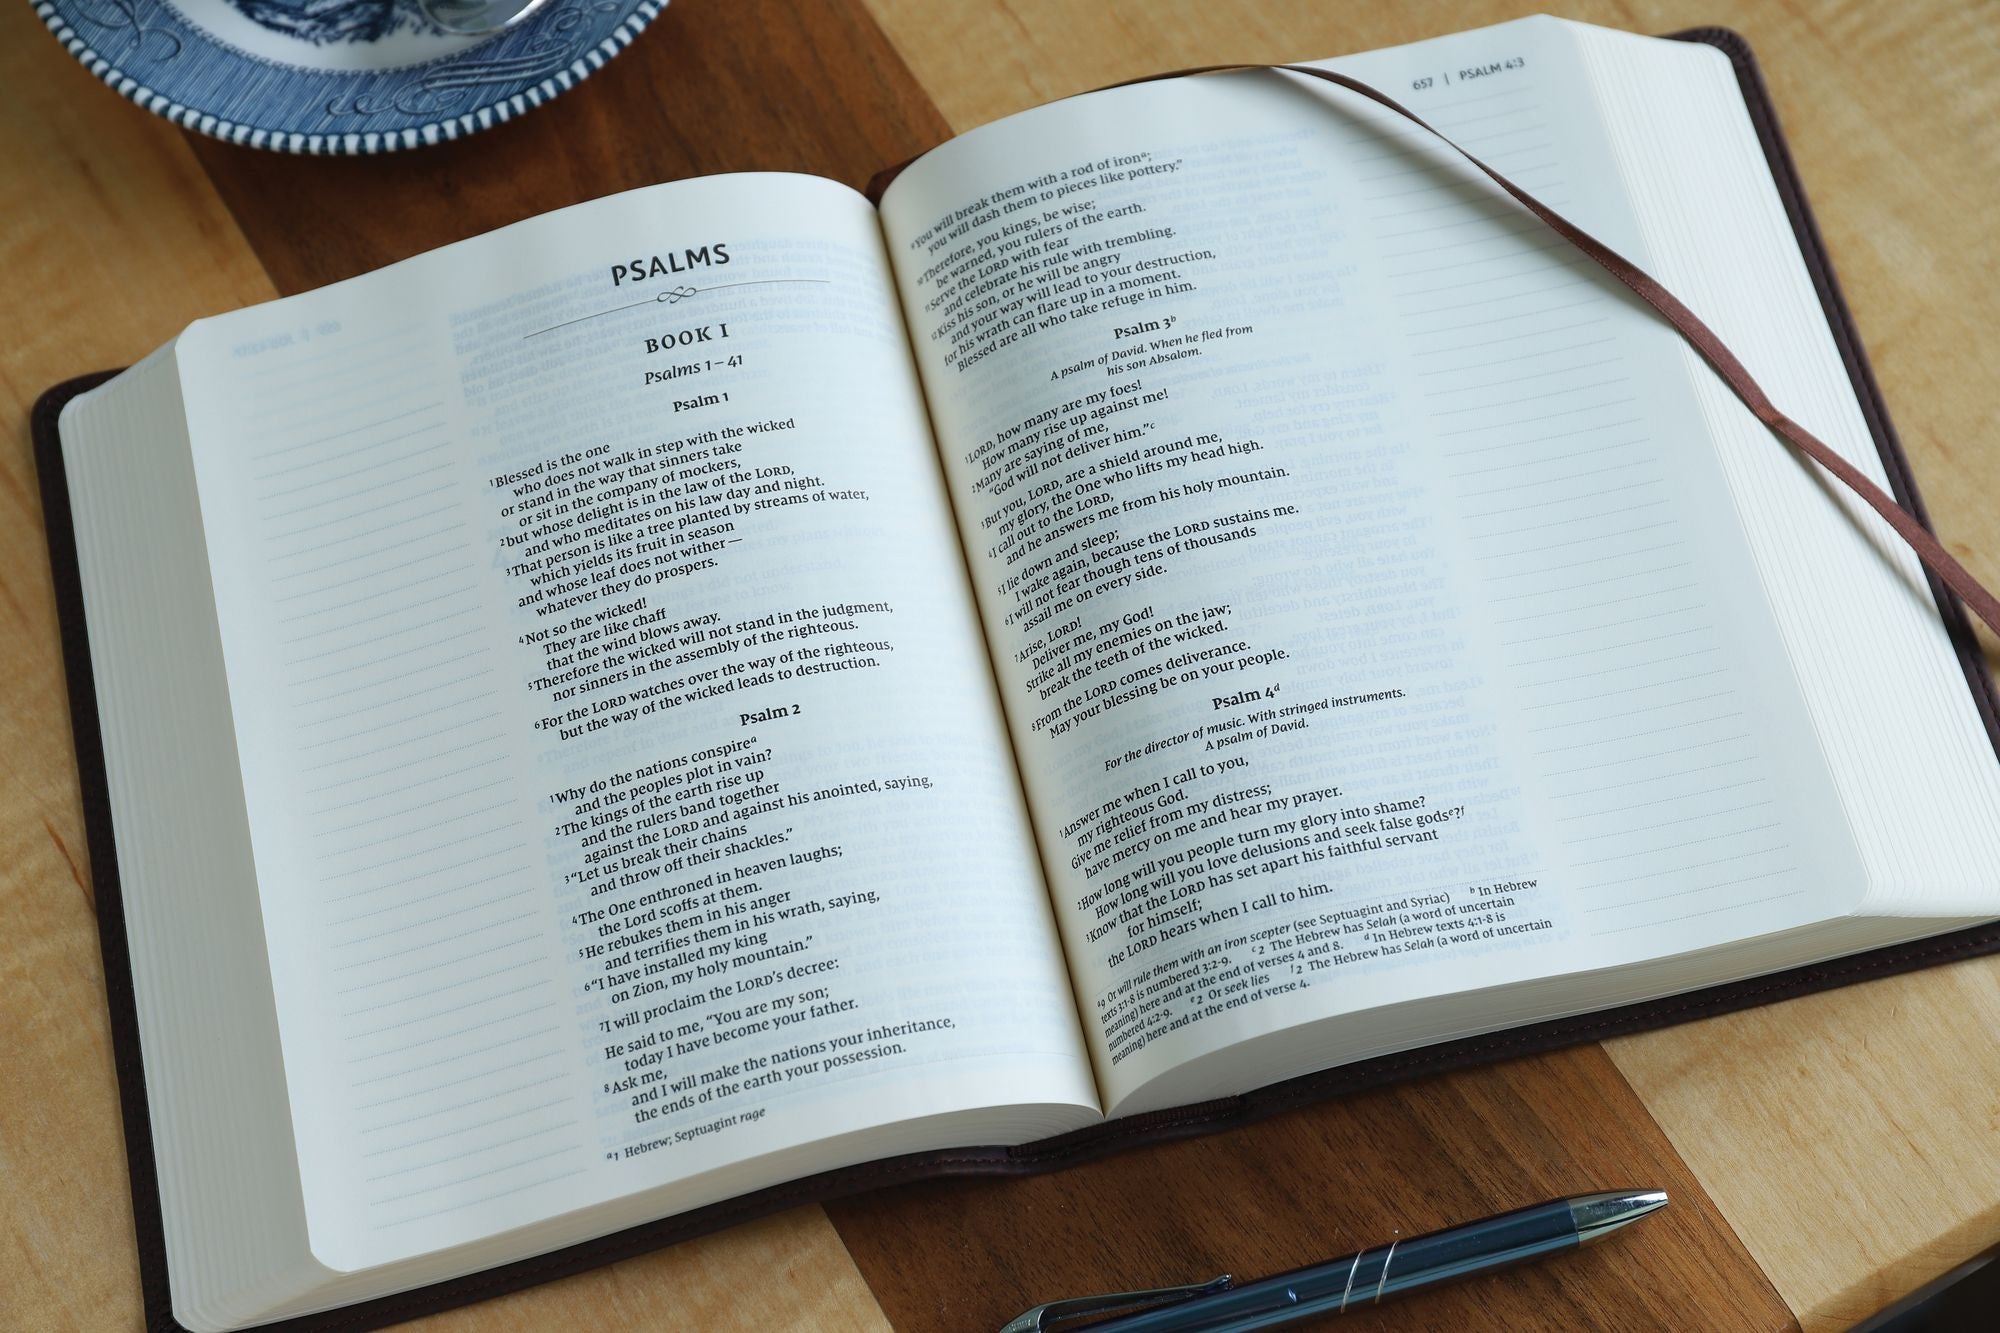 PSALMS
BOOK I
Psalms 1–41
Psalm 1
1Blessed is the one
who does not walk in step with the wicked
or stand in the way that sinners take
or sit in the company of mockers,
2but whose delight is in the law of the LORD,
and who meditates on his law day and night.
3That person is like a tree planted by streams of water,
which yields its fruit in season
and whose leaf does not wither—
whatever they do prospers.
4Not so the wicked!
They are like chaff
that the wind blows away.
5Therefore the wicked will not stand in the judgment,
nor sinners in the assembly of the righteous.
6For the LORD watches over the way of the righteous,
but the way of the wicked leads to destruction.
Psalm 2
1Why do the nations conspirea
and the peoples plot in vain?
2The kings of the earth rise up
and the rulers band together
against the LORD and against his anointed, saying,
3“Let us break their chains
and throw off their shackles.”
4The One enthroned in heaven laughs;
the Lord scoffs at them.
5He rebukes them in his anger
and terrifies them in his wrath, saying,
6“I have installed my king
on Zion, my holy mountain.”
7I will proclaim the LORD’s decree:
He said to me, “You are my son;
today I have become your father.
8Ask me,
and I will make the nations your inheritance,
the ends of the earth your possession.
a1 Hebrew; Septuagint rage
657 | PSALM 4:3
9You will break them with a rod of irona;
you will dash them to pieces like pottery.”
10Therefore, you kings, be wise;
be warned, you rulers of the earth.
11Serve the LORD with fear
and celebrate his rule with trembling.
12Kiss his son, or he will be angry
and your way will lead to your destruction,
for his wrath can flare up in a moment.
Blessed are all who take refuge in him.
Psalm 3b
A psalm of David. When he fled from
his son Absalom.
1LORD, how many are my foes!
How many rise up against me!
2Many are saying of me,
“God will not deliver him.”c
3But you, LORD, are a shield around me,
my glory, the One who lifts my head high.
4I call out to the LORD,
and he answers me from his holy mountain.
5I lie down and sleep;
I wake again, because the LORD sustains me.
6I will not fear though tens of thousands
assail me on every side.
7Arise, LORD!
Deliver me, my God!
Strike all my enemies on the jaw;
break the teeth of the wicked.
8From the LORD comes deliverance.
May your blessing be on your people.
Psalm 4d
For the director of music. With stringed instruments.
A psalm of David.
1Answer me when I call to you,
my righteous God.
Give me relief from my distress;
have mercy on me and hear my prayer.
2How long will you people turn my glory into shame?
How long will you love delusions and seek false godse?f
3Know that the LORD has set apart his faithful servant
for himself;
the LORD hears when I call to him.
a9 Or will rule them with an iron scepter (see Septuagint and Syriac) b In Hebrew
texts 3:1-8 is numbered 3:2-9. c2 The Hebrew has Selah (a word of uncertain
meaning) here and at the end of verses 4 and 8. d In Hebrew texts 4:1-8 is
numbered 4:2-9. e2 Or seek lies f2 The Hebrew has Selah (a word of uncertain
meaning) here and at the end of verse 4.